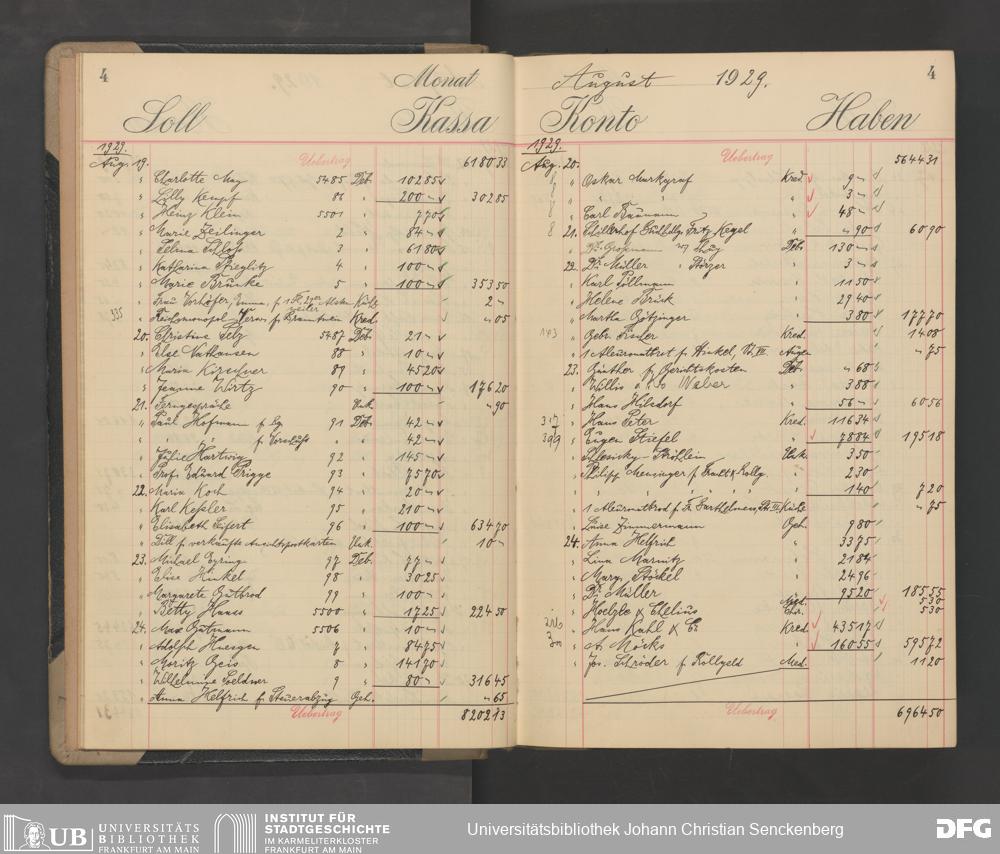 4
Monat
Soll
Kassa
1929.
Uebertrag 6180 33
Aug. 19.
" Charlotte May 5485 Deb. 102 85
" Lilly Kempf 86 " 200 - 302 85
" Heinz Klein 5501 " 7 70
" Marie Zeilinger 2 " 84 -
" Selma Schloss 3 " 61 80
" Katharina Stieglitz 4 " 100 -
" Marie Brünke 5 " 100 - 353 50
" Frau Emma, f. 1 Fl. 2 -
335 " Reichsmonopol Verw. f. Branntwein Kred. " 05
20. Christine 5487 Deb. 21 -
" Else Nathansen 88 " 10 -
" Maria Kirschner 89 " 45 20
" Jeanne Wirtz 90 " 100 - 176 20
21. Ferngespräche Unk. " 90
" Paul Hofmann f. 91 Deb. 42 -
" " " f. Vorschuss " " 42 -
" Julie Hartwig 92 " 145 -
" Prof. Eduard Prigge 93 " 75 70
22. Maria Koch 94 " 20 -
" Karl Kessler 95 " 210 -
" Elisabeth Eifert 96 " 100 - 634 70
" Dill f. verkaufte Ansichtspostkarten Unk. 10 -
23. Michael Eyring 97 Deb. 77 -
" Elise Hinkel 98 " 30 25
" Margarete Gutbrod 99 " 100 -
" Betty Haas 5500 " 17 25 224 50
24. Max Gutmann 5506 " 10 -
" Adolph Huesgen 7 " 84 75
" Moritz Geis 8 " 141 70
" Wilhelmine Soeldner 9 " 80 - 316 45
" Anna Helfrich f. Steuerabzug Geh. " 65
Uebertrag 8202 13
August 1929.
4
Konto
Haben
1929.
Uebertrag 5644 31
Aug. 20.
" Oskar Markgraf Kred. 9 -
" " " " 3 -
" Carl Baumann " 48 -
21. Schillerhof Fritz Kegel " " 90 60 90
" Dr. Grossmann Deb. 130 -
22. Dr. Müller " Störzer " 3 -
" Karl Göllmann " 11 50
" Helene Frick " 29 40
" Martha Götzinger " 3 80 177 70
143 " Gebr. Fischer Kred. 14 08
" 1 f. Hinkel, St. III Augen " 75
23. Günther f. Gerichtskosten Deb. " 68
" Willis Weber " 3 88
" Hans Hilsdorf " 56 - 60 56
317 " Hans Peter Kred. 116 34
399 " Eugen Stiefel " 78 84 195 18
" Schlesicky Ströhlein Unk. 3 50
" Philipp Mensinger f. Fracht & Rollg. " 2 30
" " " " " " " 1 40 7 20
" 1 f. Fr. Barthelmess, St. III Küche " 75
" Luise Zimmermann Geh. 9 80
24. Anna Helfrich " 33 75
" Lina Marnitz " 21 84
" Marg. Stöckel " 24 96
" Dr. Müller " 95 20 185 55
" Hoelzle & Chelius Med. 5 30
Chir. 5 30
" Hans Kahl & Co Kred. 435 17
" A. Möcks " 160 55 595 72
" Jos. Schröder f. Rollgeld Med. 11 20
Uebertrag 6964 50
UB UNIVERSITÄTS
BIBLIOTHEK
FRANKFURT AM MAIN
INSTITUT FÜR
STADTGESCHICHTE
IM KARMELITERKLOSTER
FRANKFURT AM MAIN
Universitätsbibliothek Johann Christian Senckenberg
DFG